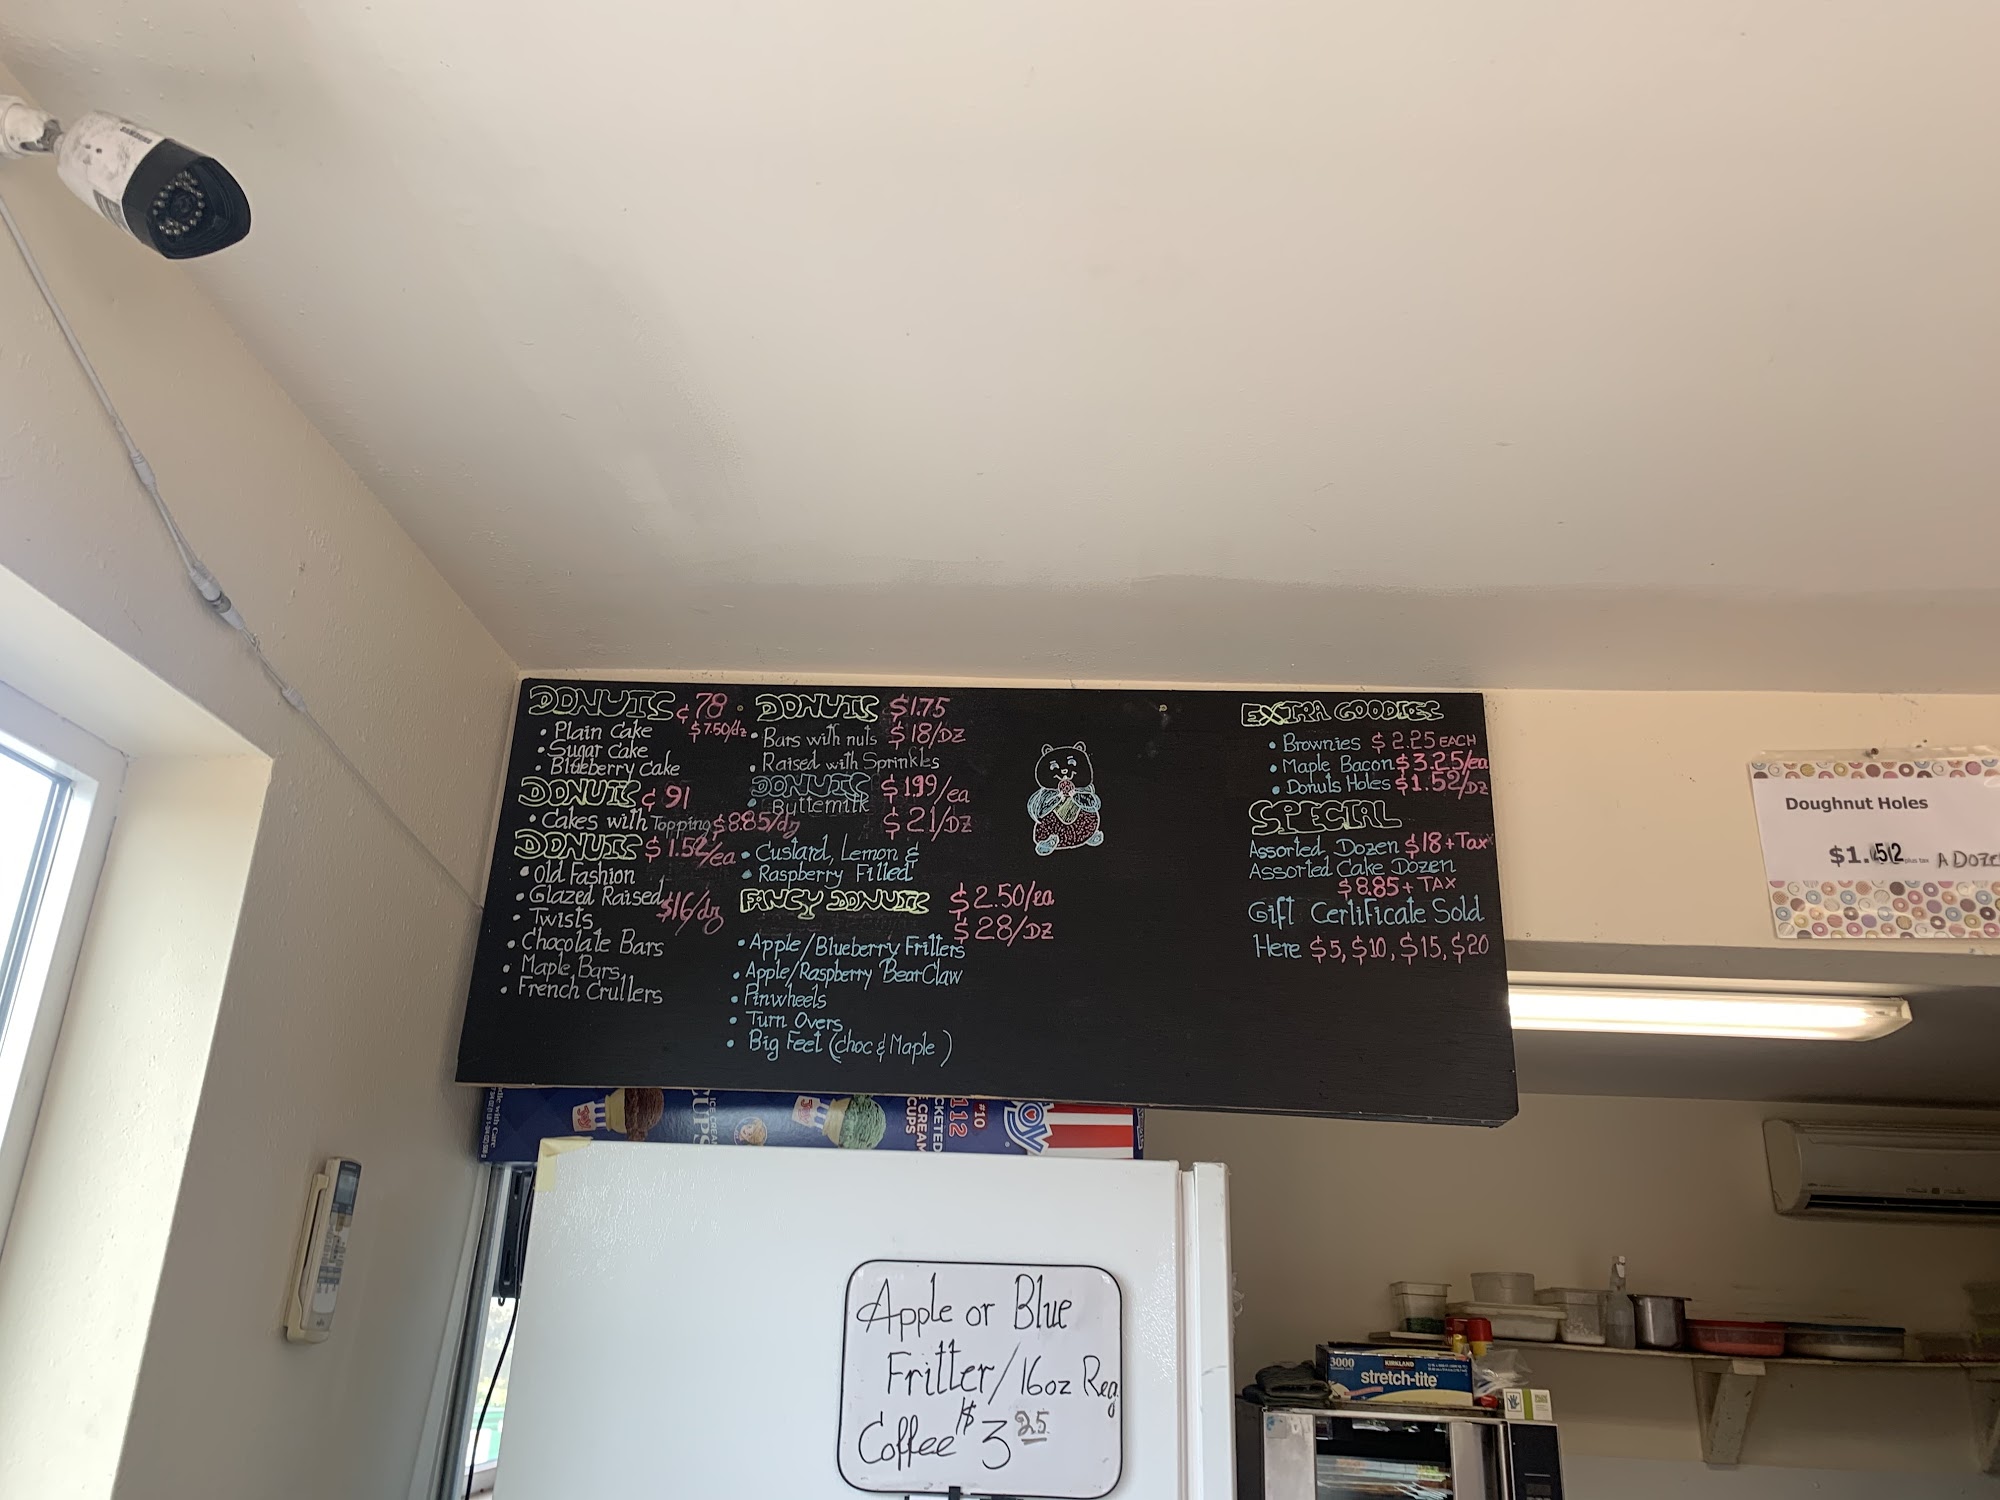 DONUTS ¢78
$7.50/dz
• Plain Cake
• Sugar Cake
• Blueberry Cake
DONUTS ¢91
• Cakes with Topping $8.85/dz
DONUTS $1.52/ea
• Old Fashion
• Glazed Raised $16/dz
• Twists
• Chocolate Bars
• Maple Bars
• French Crullers
DONUTS $1.75
• Bars with nuts $18/DZ
• Raised with Sprinkles
DONUTS $1.99/ea
• Buttermilk $21/DZ
• Custard, Lemon &
• Raspberry Filled
FANCY DONUTS $2.50/ea
$28/DZ
• Apple/Blueberry Fritters
• Apple/Raspberry BearClaw
• Pinwheels
• Turn Overs
• Big Feet (choc & Maple)
EXTRA GOODIES
• Brownies $2.25 EACH
• Maple Bacon $3.25/ea
• Donuts Holes $1.52/DZ
SPECIAL
Assorted Dozen $18+Tax
Assorted Cake Dozen
$8.85+TAX
Gift Certificate Sold
Here $5, $10, $15, $20
Doughnut Holes
$1.52 plus tax A DOZE
#10
112
CUPS
JOY
Apple or Blue
Fritter/16oz Reg
Coffee $3 25
3000 KIRKLAND
stretch-tite